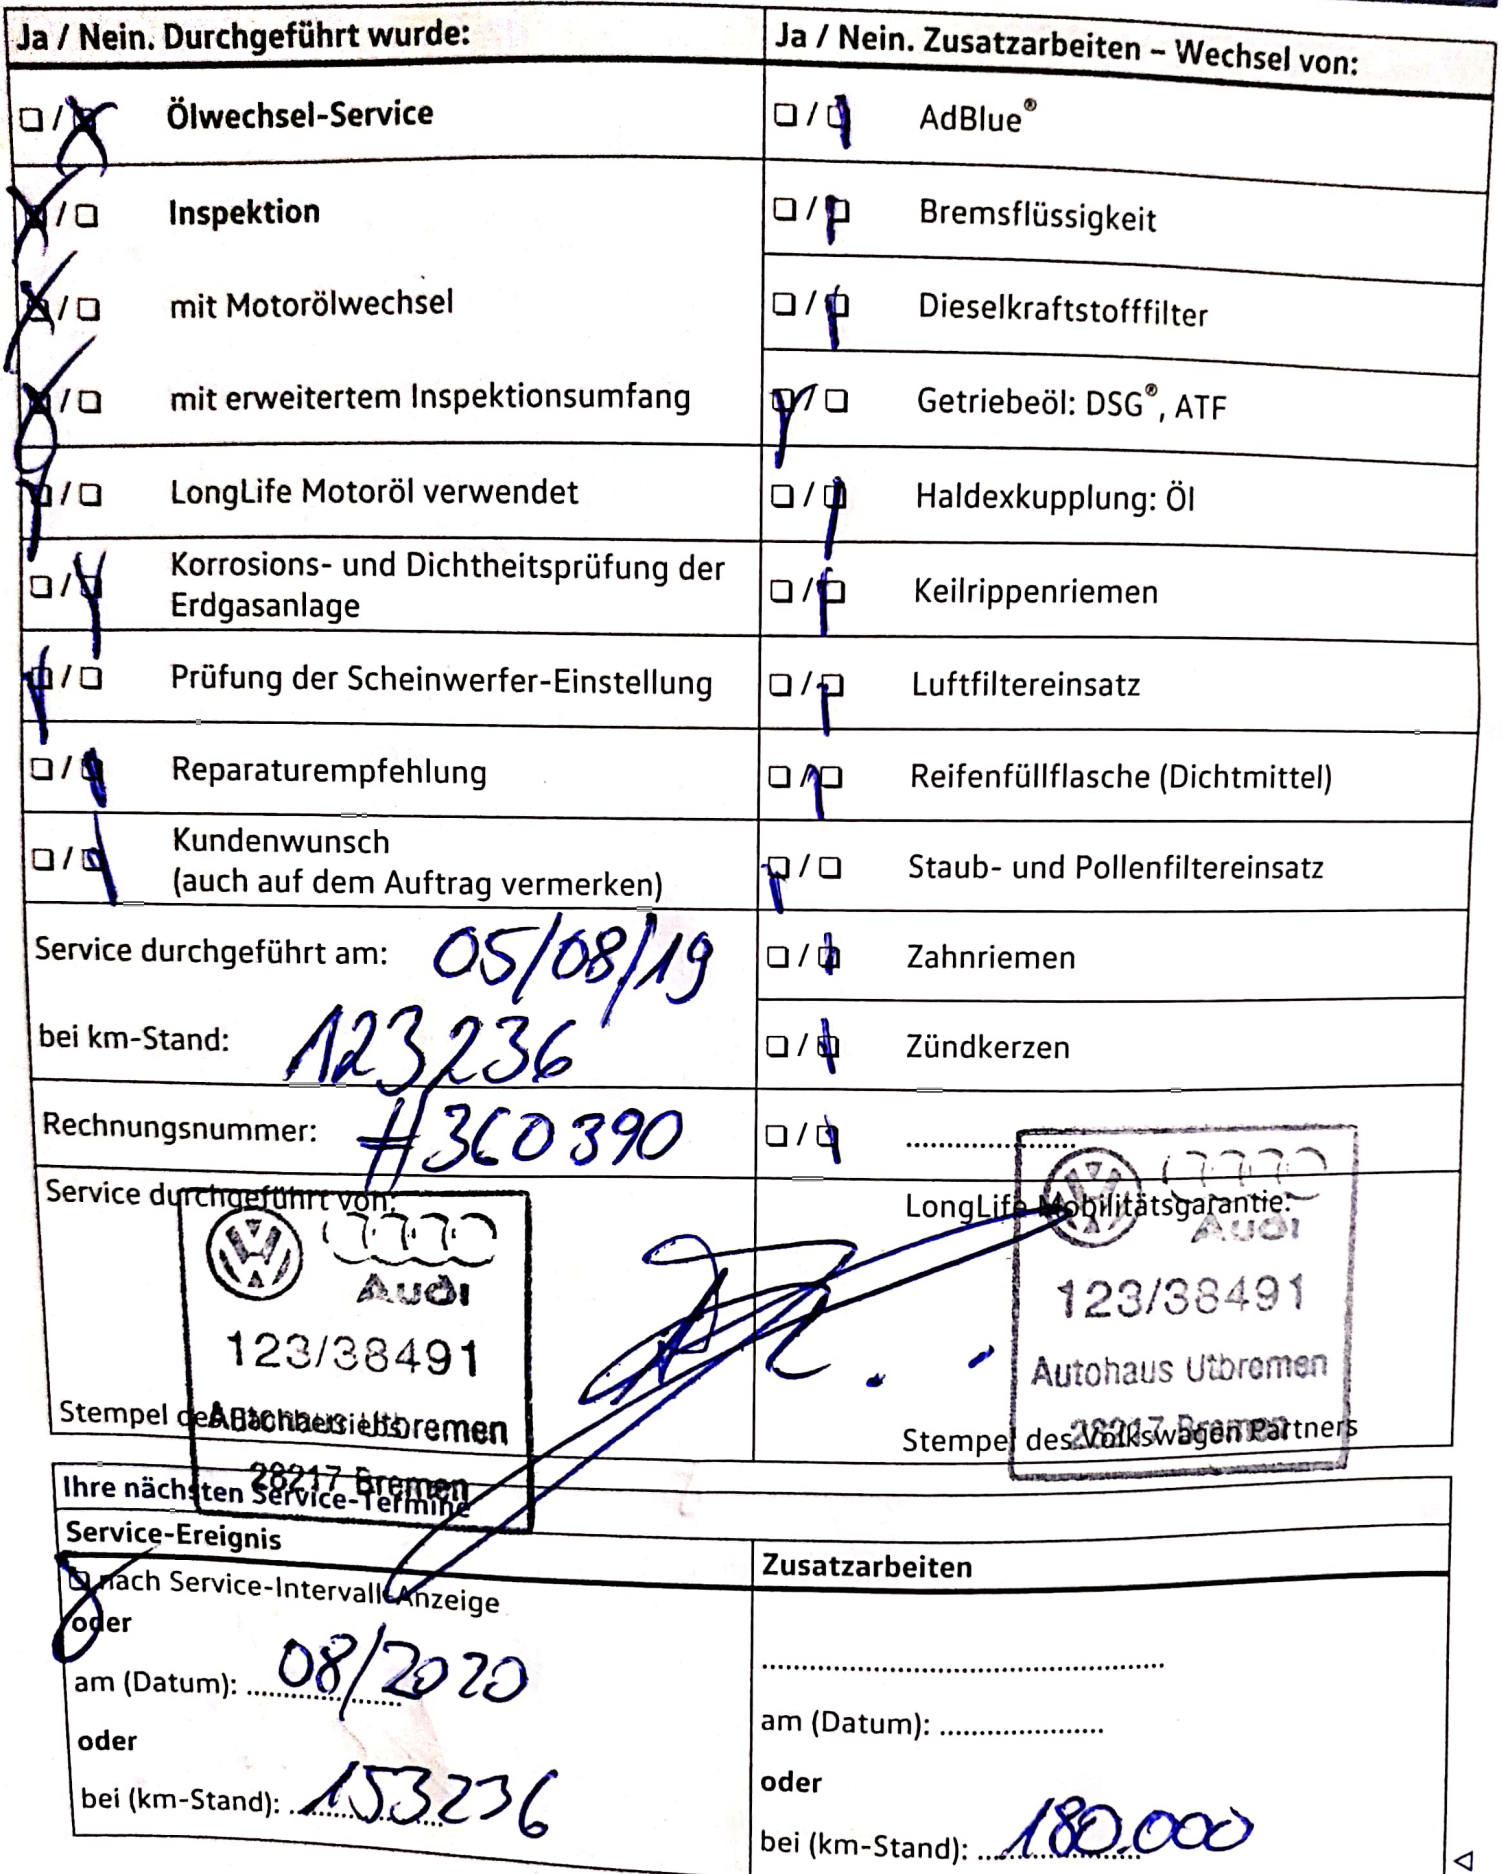 Ja / Nein. Durchgeführt wurde:
☐ / ☒ Ölwechsel-Service
☒ / ☐ Inspektion
☒ / ☐ mit Motorölwechsel
☒ / ☐ mit erweitertem Inspektionsumfang
☒ / ☐ LongLife Motoröl verwendet
☐ / ☒ Korrosions- und Dichtheitsprüfung der
Erdgasanlage
☒ / ☐ Prüfung der Scheinwerfer-Einstellung
☐ / ☒ Reparaturempfehlung
☐ / ☒ Kundenwunsch
(auch auf dem Auftrag vermerken)
Service durchgeführt am: 05/08/19
bei km-Stand: 123,236
Rechnungsnummer: #360390
Service durchgeführt von:
Audi
123/38491
Autohaus Utbremen
Stempel des Fachbetriebs
28217 Bremen
Ja / Nein. Zusatzarbeiten – Wechsel von:
☐ / ☒ AdBlue®
☐ / ☒ Bremsflüssigkeit
☐ / ☒ Dieselkraftstofffilter
☒ / ☐ Getriebeöl: DSG®, ATF
☐ / ☒ Haldexkupplung: Öl
☐ / ☒ Keilrippenriemen
☐ / ☒ Luftfiltereinsatz
☐ / ☒ Reifenfüllflasche (Dichtmittel)
☒ / ☐ Staub- und Pollenfiltereinsatz
☐ / ☒ Zahnriemen
☐ / ☒ Zündkerzen
☐ / ☒ ........................
LongLife Mobilitätsgarantie:
Audi
123/38491
Autohaus Utbremen
28217 Bremen
Stempel des Volkswagen Partners
Ihre nächsten Service-Termine
Service-Ereignis
☒ nach Service-Intervall-Anzeige
oder
am (Datum): 08/2020
oder
bei (km-Stand): 153236
Zusatzarbeiten
........................
am (Datum): ........................
oder
bei (km-Stand): 180.000